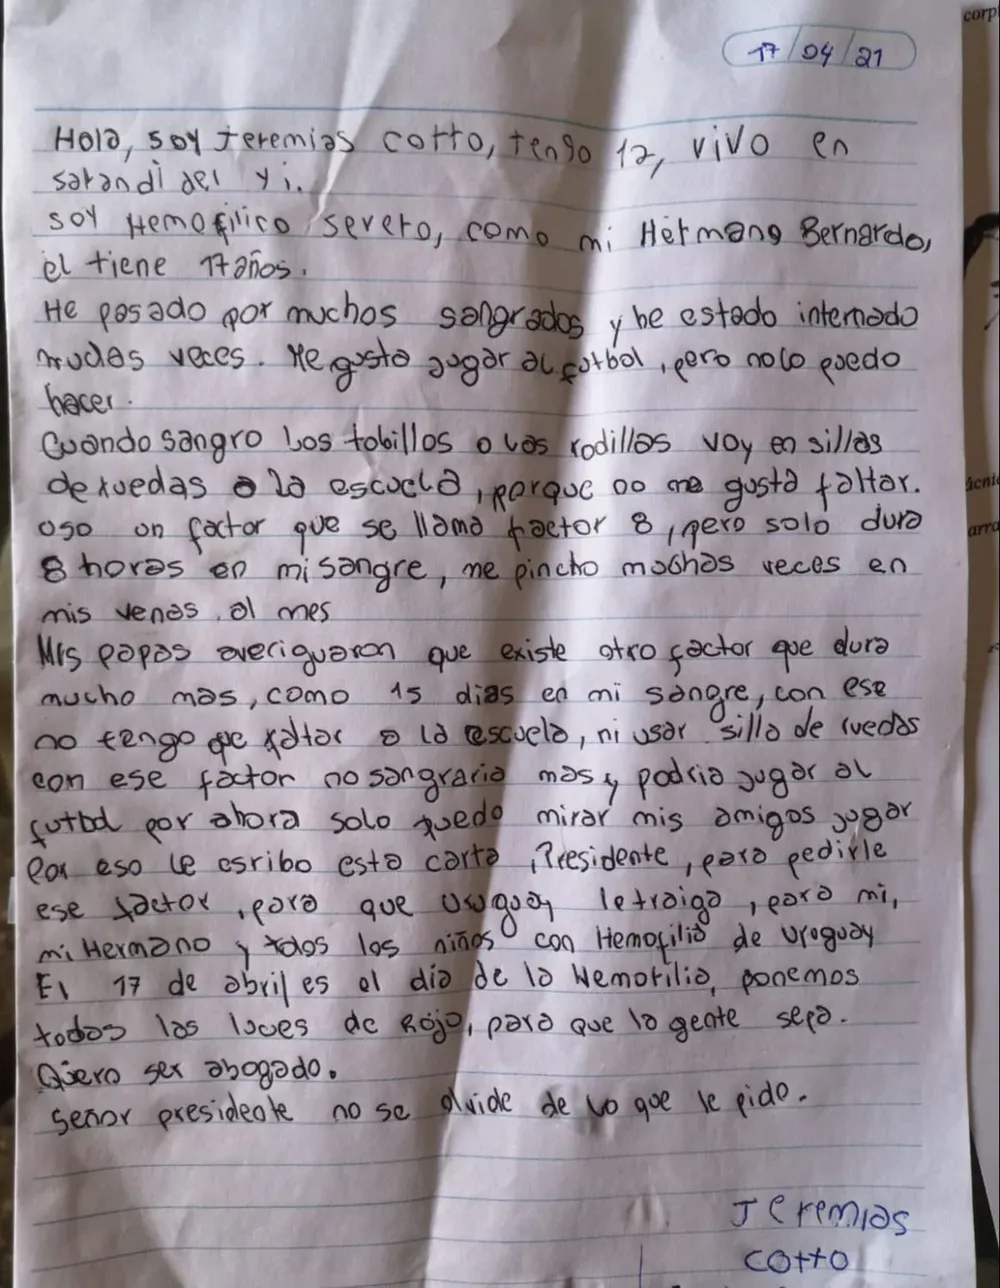 corp
17/04/21
Hola, soy Jeremias cotto, tengo 12, vivo en
sarandì del yi.
soy Hemofilico severo, como mi Hermano Bernardo,
èl tiene 17 años.
He pasado por muchos sangrados y he estado internado
muchas veces. Me gusta jugar al futbol, pero no lo puedo
hacer.
Cuando sangro los tobillos o las rodillas voy en sillas
de ruedas a la escuela, porque no me gusta faltar.
uso un factor que se llama factor 8, pero solo dura
8 horas en mi sangre, me pincho muchas veces en
mis venas al mes
Mis papas averiguaron que existe otro factor que dura
mucho mas, como 15 dias en mi sangre, con ese
no tengo que faltar a la escuela, ni usar silla de ruedas
con ese factor no sangraria mas y podria jugar al
futbol por ahora solo puedo mirar mis amigos jugar
Por eso le esribo esta carta, Presidente, para pedirle
ese factor, para que Uruguay le traiga, para mi,
mi Hermano y todos los niños con Hemofilia de Uruguay
El 17 de abril es el dia de la Hemofilia, ponemos
todas las luces de Rojo, para que la gente sepa.
Quiero ser abogado.
señor presidente no se olvide de lo que le pido.
Jeremias
cotto